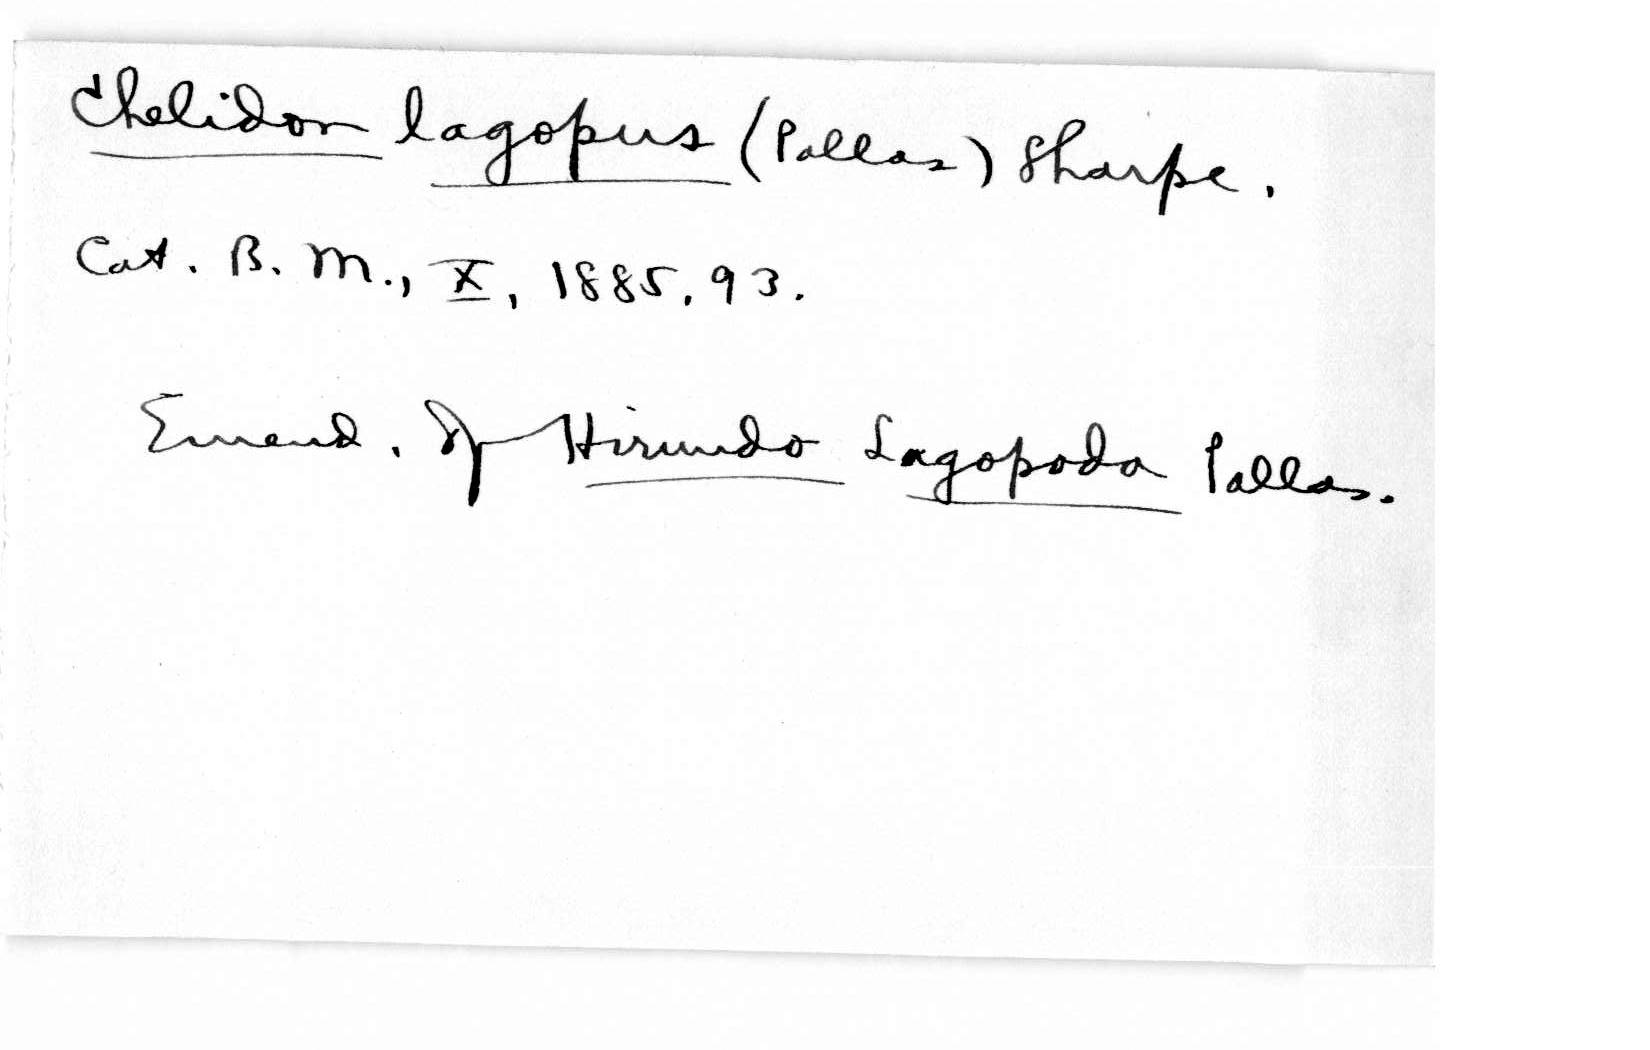 Chelidon lagopus (Pallas) Sharpe.
Cat. B. M., X, 1885, 93.
Emend. of Hirundo Lagopoda Pallas.